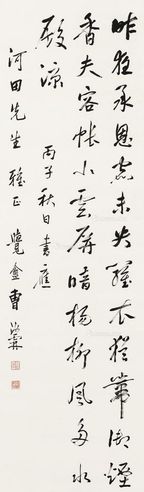 昨夜承恩宿未央羅衣猶帶御煙
香夫容帳小雲屏暗楊柳風多水
殿涼 丙子秋日書應
河田先生雅正 覺盦曹汝霖